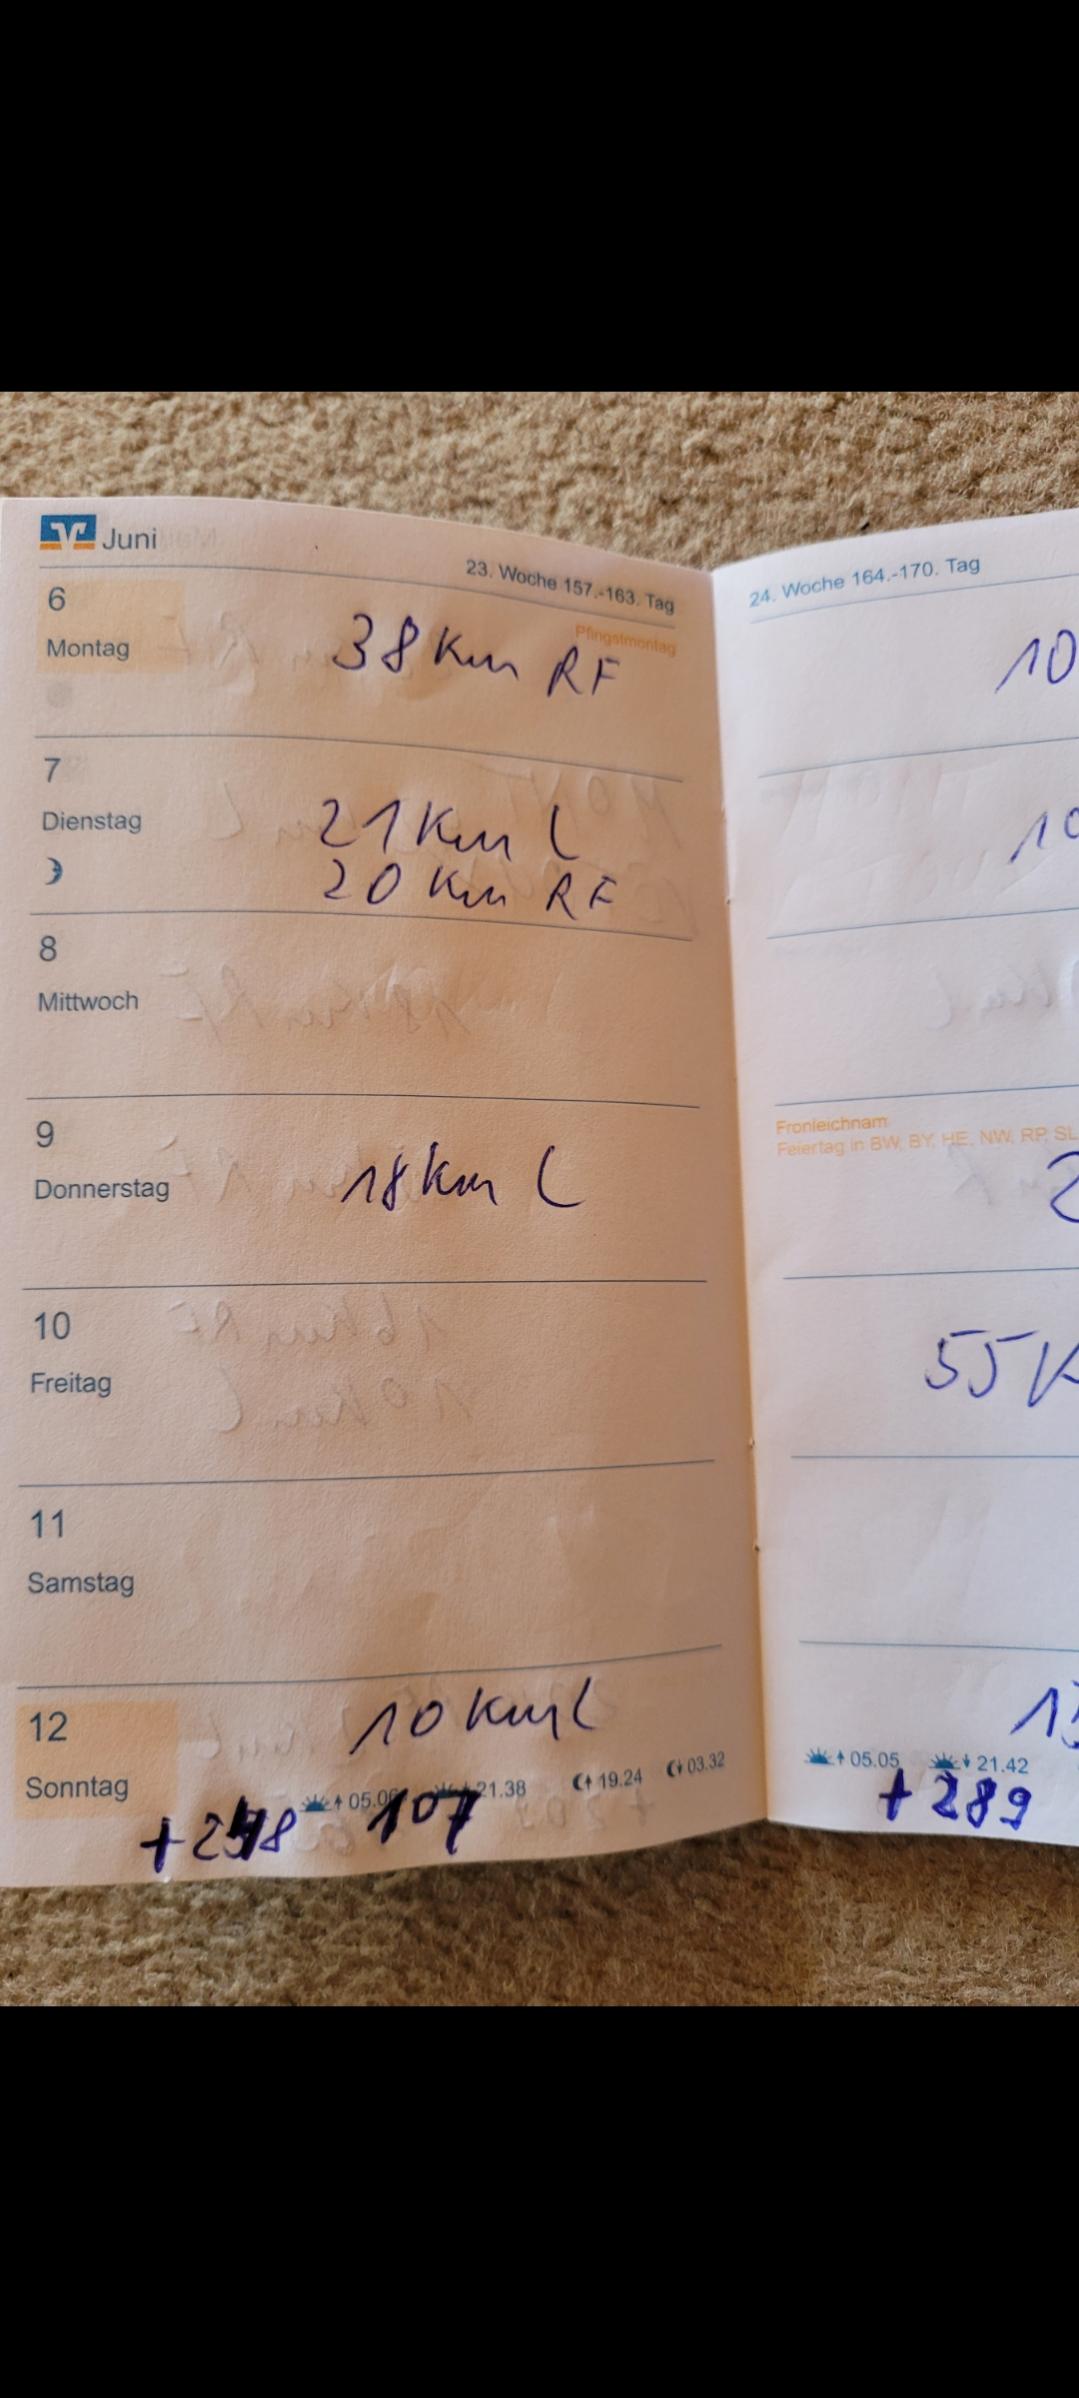 Juni
23. Woche 157.-163. Tag
6
Pfingstmontag
Montag
38 Km RF
7
Dienstag
21 Km L
20 Km RF
8
Mittwoch
9
Donnerstag
18 Km L
10
Freitag
11
Samstag
12
Sonntag
10 Km L
05.06 21.38 19.24 03.32
107
24. Woche 164.-170. Tag
10
10
Fronleichnam
Feiertag in BW, BY, HE, NW, RP, SL
2
55 K
05.05 21.42
+289